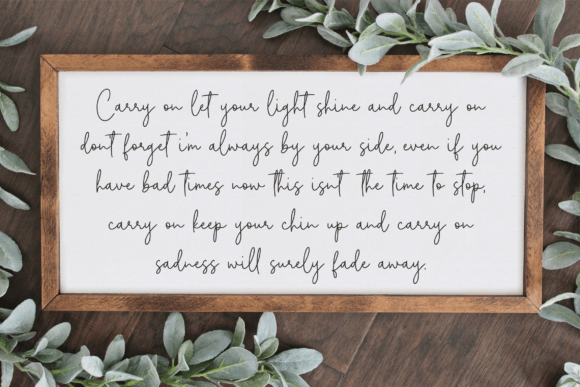 Carry on let your light shine and carry on
dont forget i'm always by your side, even if you
have bad times now this isnt the time to stop,
carry on keep your chin up and carry on
sadness will surely fade away.